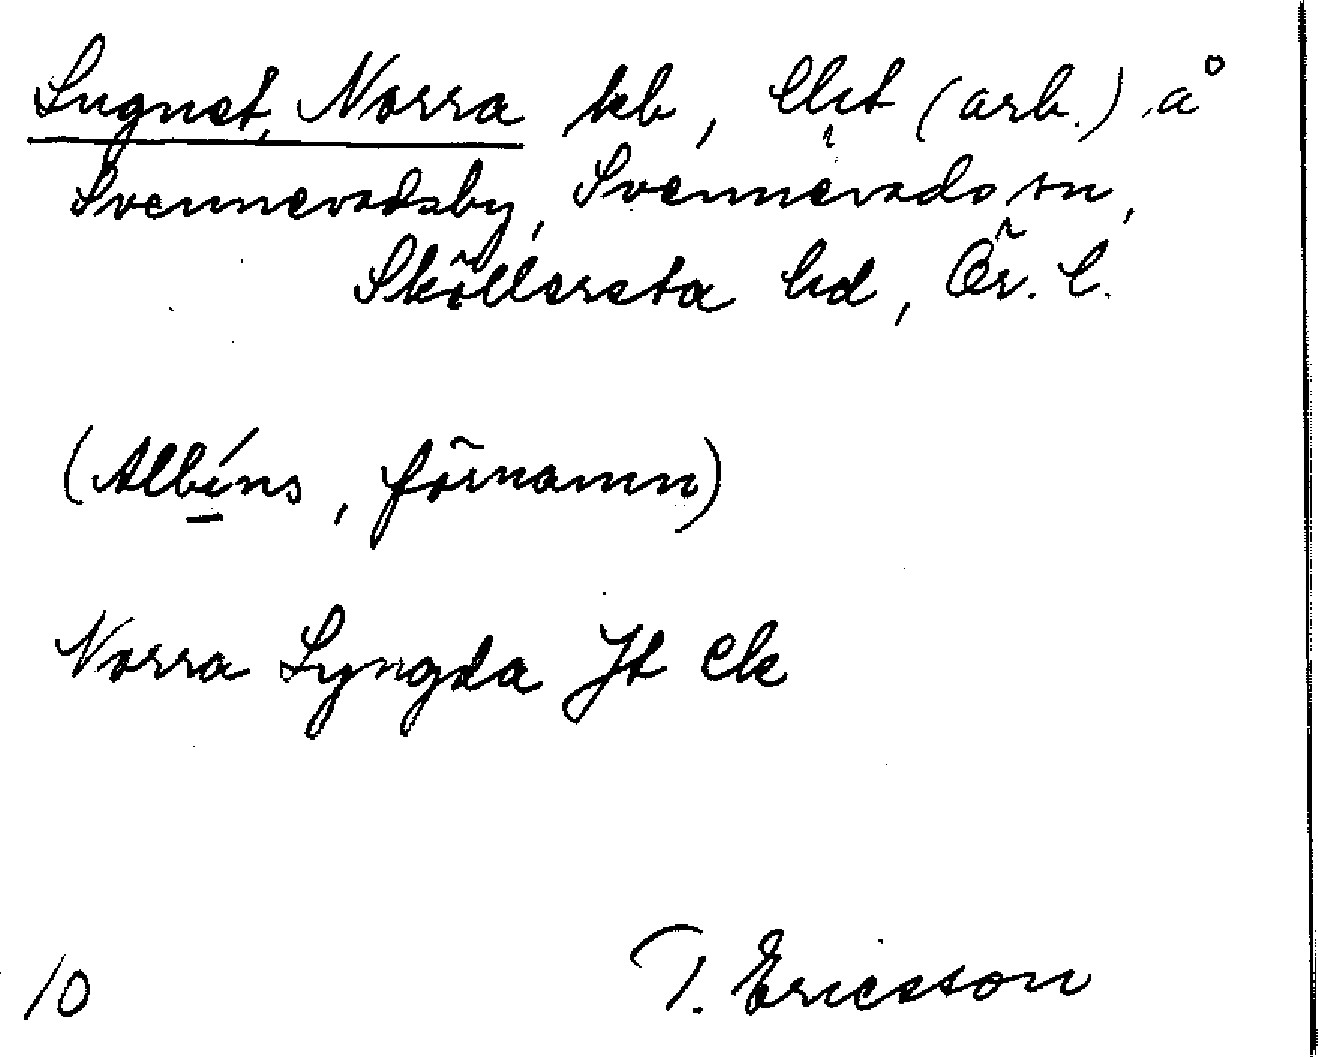 Lugnet, Norra tb, lht (arb.) å
Svennevadsby, Svennevads sn,
Sköllersta hd, Ör. l.
(Albíns, förnamn)
Norra Lyngda Jt Ek
10 T. Ericsson